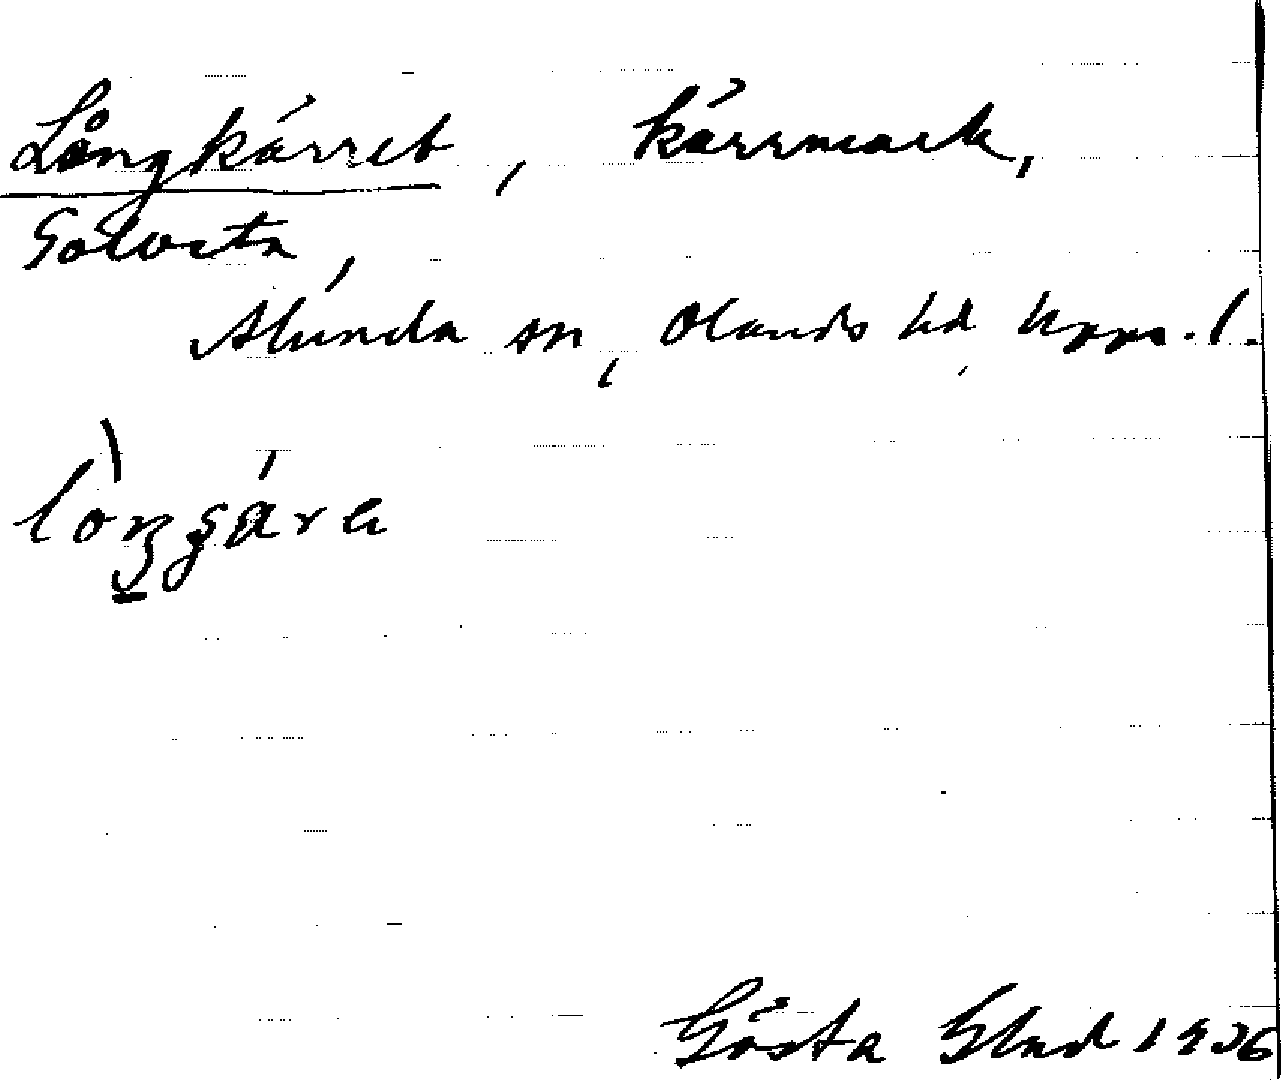 Långkärret, kärrmark,
Golvsta,
Alunda sn, Olands hd, Upps. l.
Gösta Glad 1936